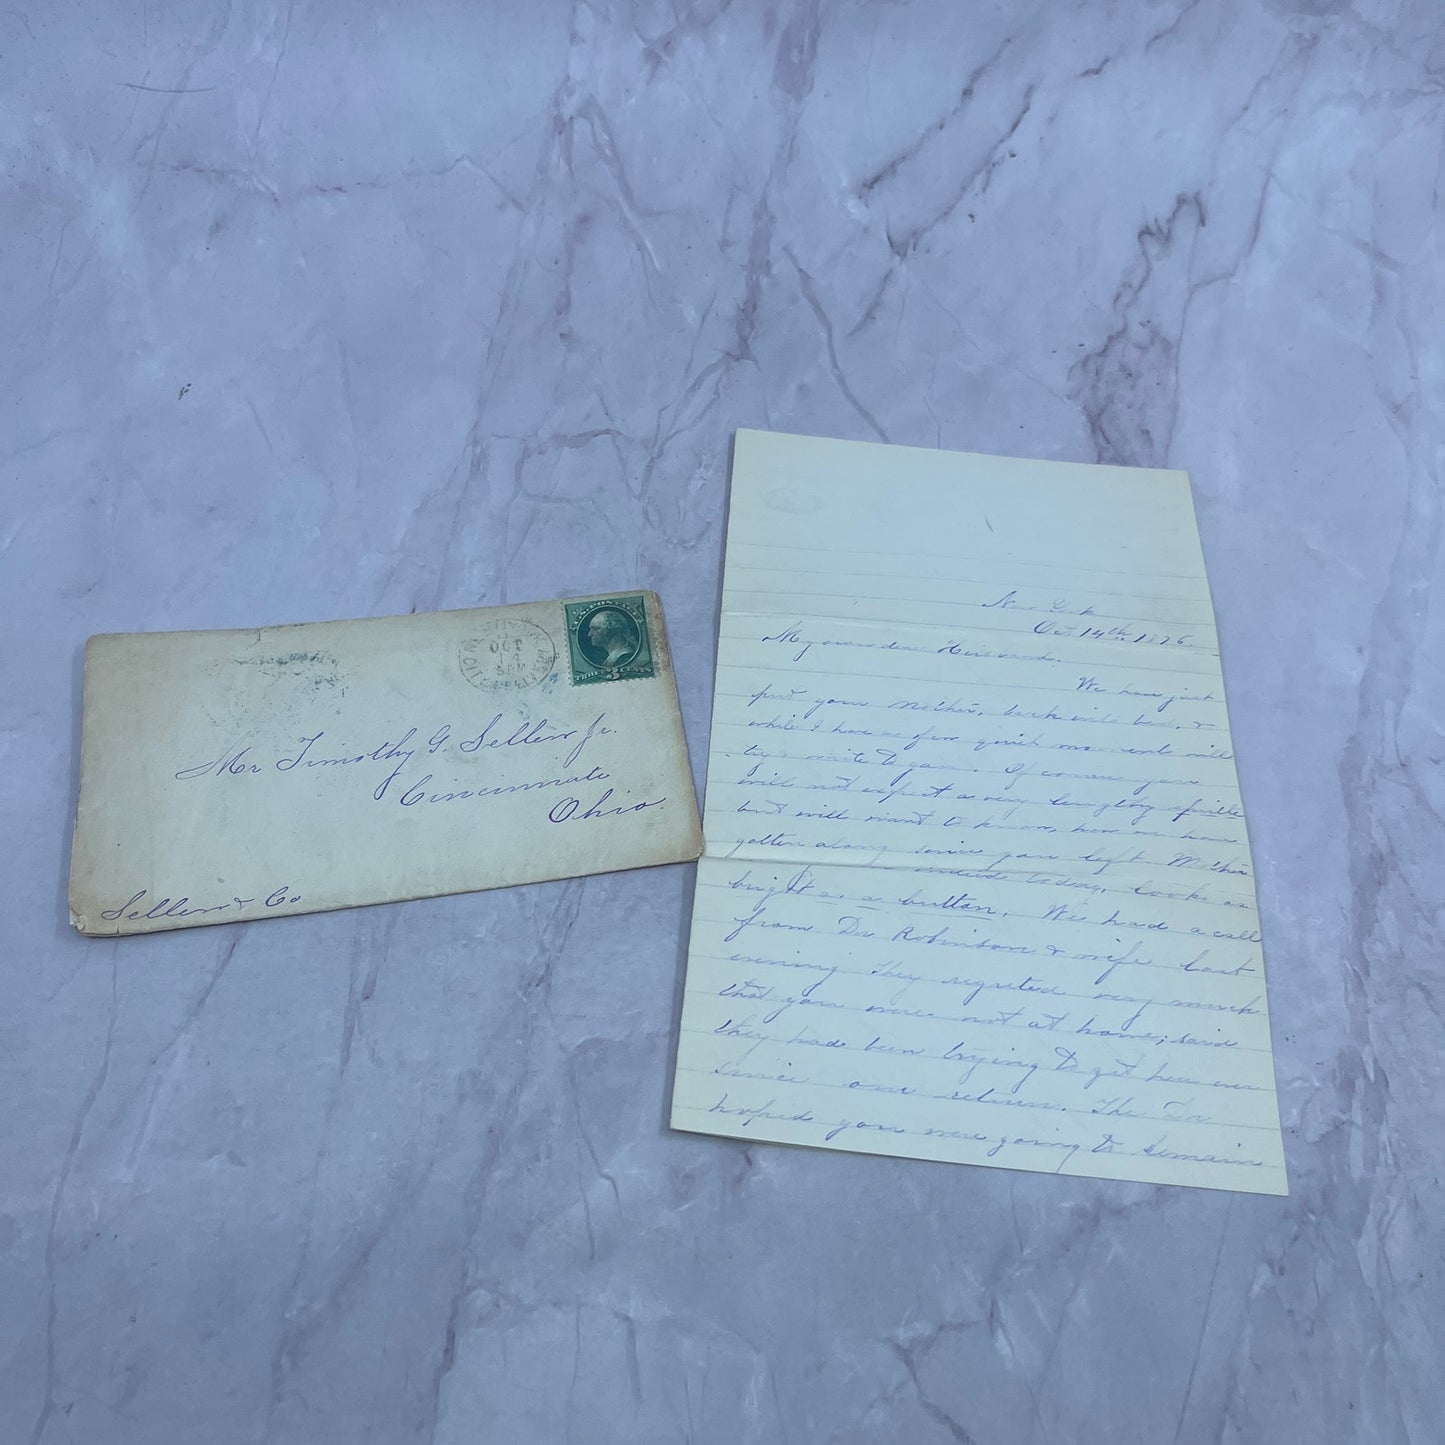 U.S. POSTAGE
THREE 3 CENTS
NEW YORK
OCT
Mr Timothy G. Sellew Jr.
Cincinnati
Ohio.
Sellew & Co
New York
Oct 14th 1876
My own dear Husband.
We have just
put your Mother, back into bed, &
while I have a few quiet moments will
try & write to you. Of course you
will not expect a very lengthy epistle
but will want to know, how we have
gotten along since you left. Mother
indeed today, looks as
bright as a button. We had a call
from Dr Robinson & wife last
evening They regreted very much
that you were not at home; said
they had been trying to get here ever
since our return. The Dr
hoped you were going to remain